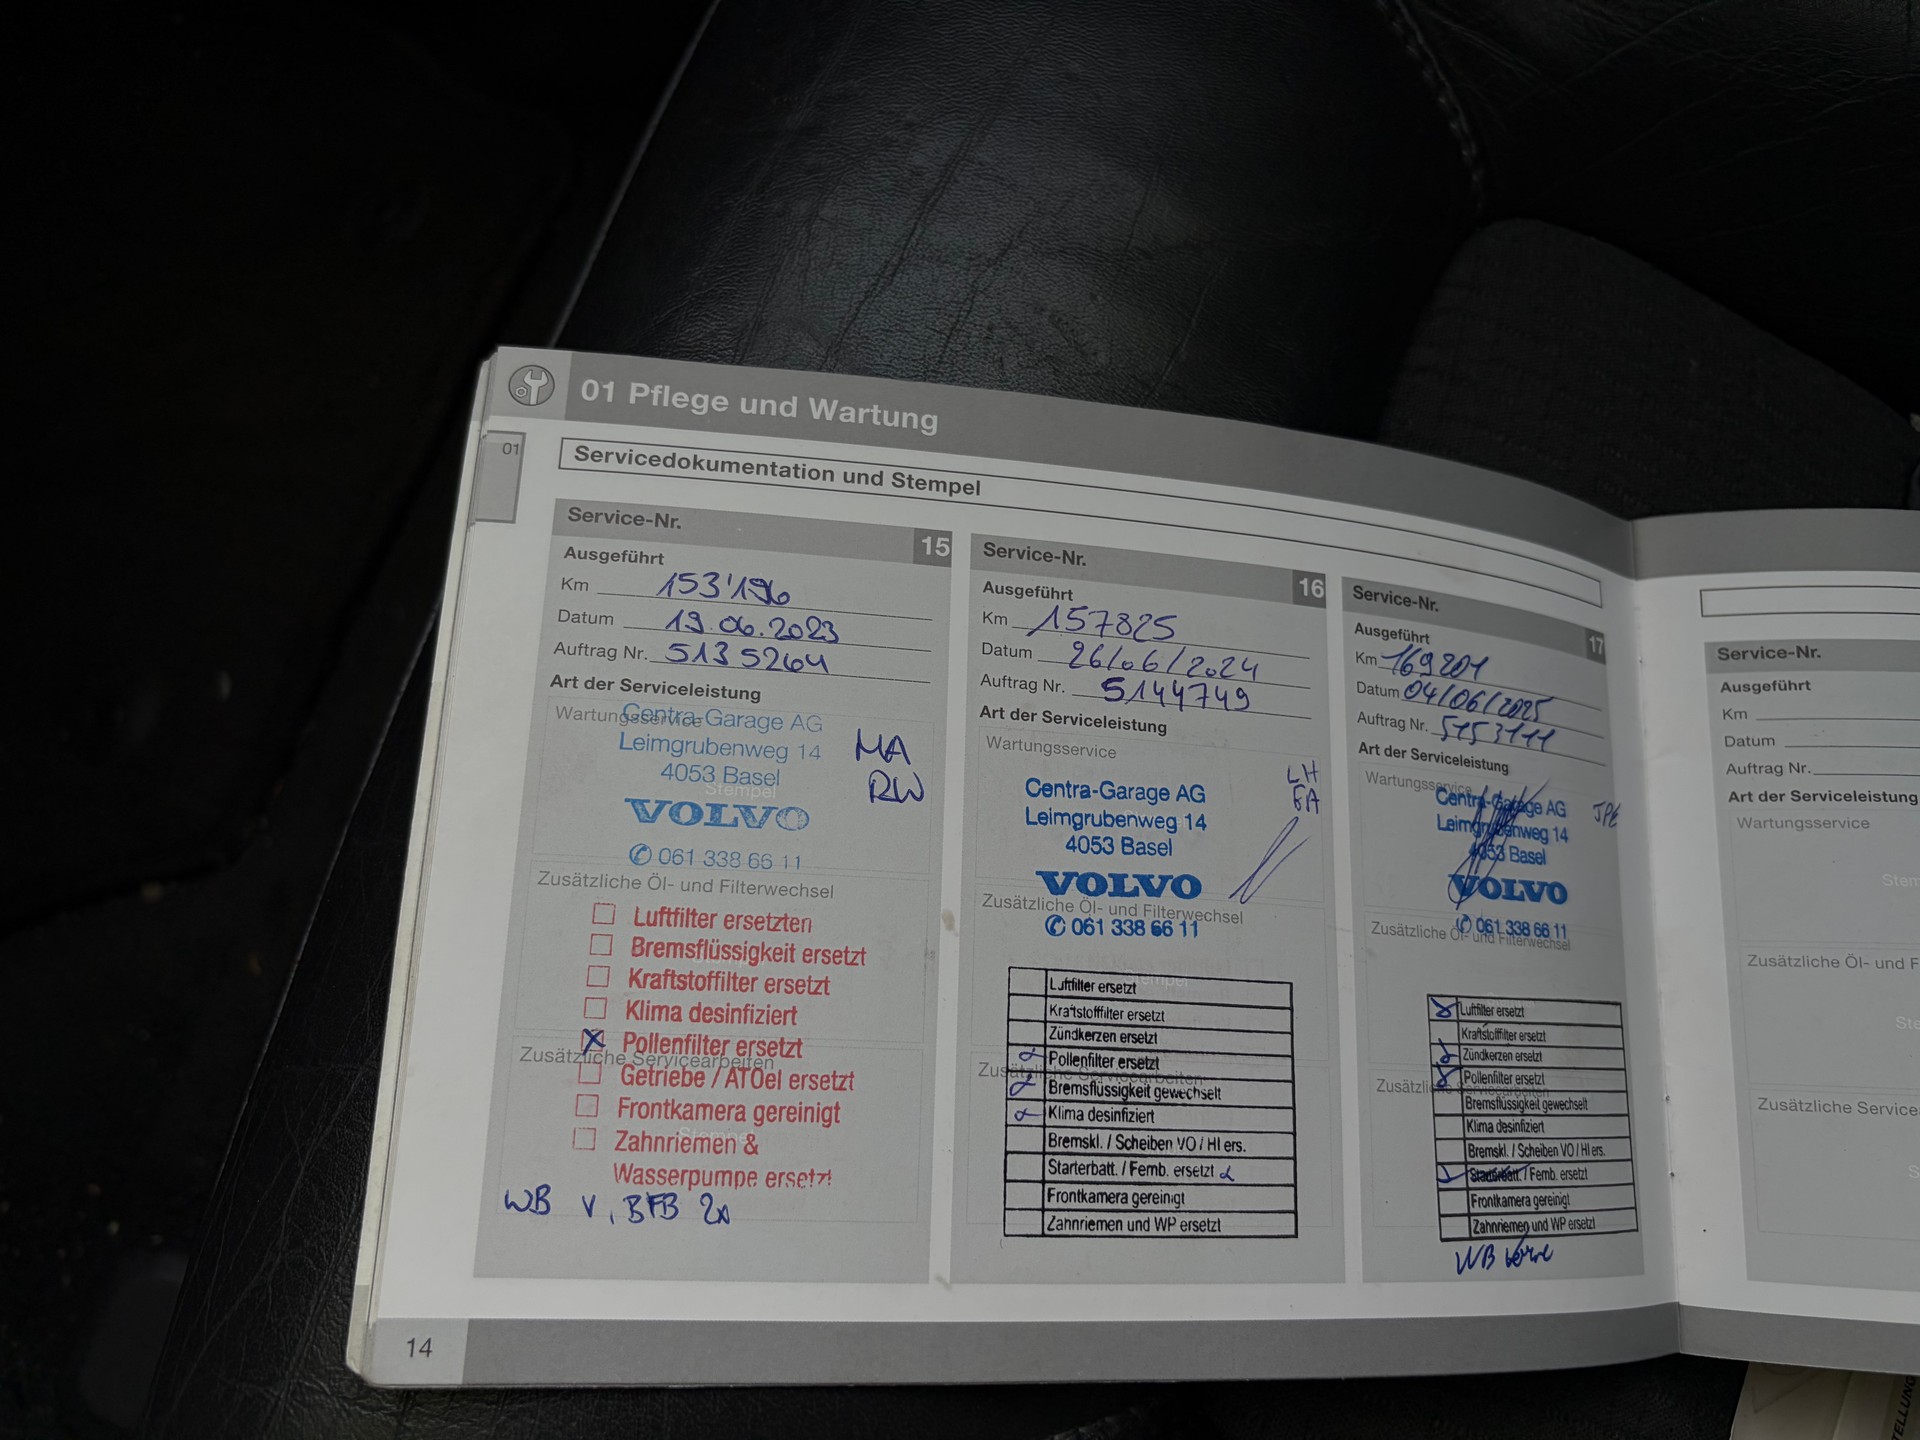 01 Pflege und Wartung
01
Servicedokumentation und Stempel
Service-Nr. 15
Ausgeführt
Km 153'196
Datum 19.06.2023
Auftrag Nr. 5135264
Art der Serviceleistung
Wartungsservice
Centra-Garage AG
Leimgrubenweg 14
4053 Basel
Stempel
VOLVO
061 338 66 11
MA
RW
Zusätzliche Öl- und Filterwechsel
Luftfilter ersetzten
Bremsflüssigkeit ersetzt
Kraftstoffilter ersetzt
Klima desinfiziert
X Pollenfilter ersetzt
Zusätzliche Servicearbeiten
Getriebe / ATOel ersetzt
Frontkamera gereinigt
Stempel
Zahnriemen &
Wasserpumpe ersetzt
WB V, BFB 2x
Service-Nr. 16
Ausgeführt
Km 157825
Datum 26/06/2024
Auftrag Nr. 5144749
Art der Serviceleistung
Wartungsservice
LH
Centra-Garage AG
Leimgrubenweg 14
4053 Basel
VOLVO
Zusätzliche Öl- und Filterwechsel
061 338 66 11
Luftfilter ersetzt
Kraftstofffilter ersetzt
Zündkerzen ersetzt
Pollenfilter ersetzt
Zusätzliche Servicearbeiten
Bremsflüssigkeit gewechselt
Klima desinfiziert
Bremskl. / Scheiben VO / HI ers.
Starterbatt. / Fernb. ersetzt
Frontkamera gereinigt
Zahnriemen und WP ersetzt
Service-Nr. 17
Ausgeführt
Km 169201
Datum 04/06/2025
Auftrag Nr. 5153111
Art der Serviceleistung
Wartungsservice
Centra-Garage AG
Leimgrubenweg 14
4053 Basel
VOLVO
061 338 66 11
Zusätzliche Öl- und Filterwechsel
Luftfilter ersetzt
Kraftstofffilter ersetzt
Zündkerzen ersetzt
Pollenfilter ersetzt
Zusätzliche Servicearbeiten
Bremsflüssigkeit gewechselt
Klima desinfiziert
Bremskl. / Scheiben VO / HI ers.
Starterbatt. / Fernb. ersetzt
Frontkamera gereinigt
Zahnriemen und WP ersetzt
WB
14
Service-Nr.
Ausgeführt
Km
Datum
Auftrag Nr.
Art der Serviceleistung
Wartungsservice
Stem
Zusätzliche Öl- und F
Ste
Zusätzliche Service
TELLUNG